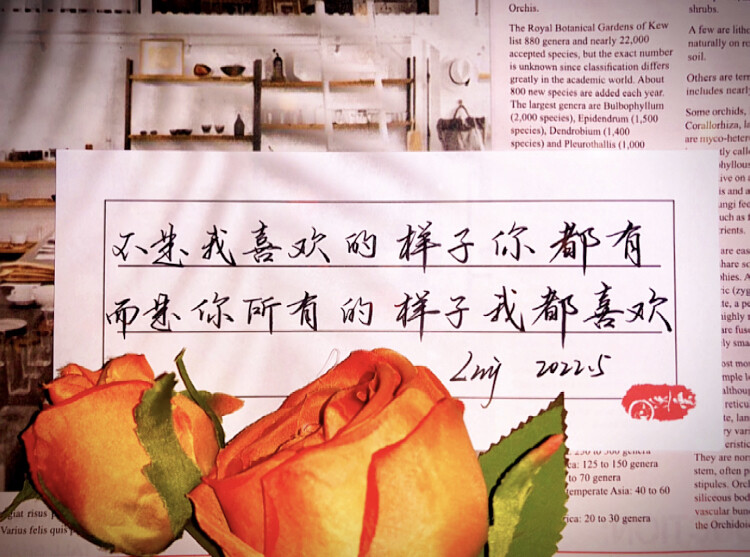 Orchis.
The Royal Botanical Gardens of Kew
list 880 genera and nearly 22,000
accepted species, but the exact number
is unknown since classification differs
greatly in the academic world. About
800 new species are added each year.
The largest genera are Bulbophyllum
(2,000 species), Epidendrum (1,500
species), Dendrobium (1,400
species) and Pleurothallis (1,000
shrubs.
A few are
naturally on
soil.
Others are
includes
Some orchids,
Corallorhiza,
are
不是我喜欢的样子你都有
而是你所有的样子我都喜欢
2022.5
ca: 125 to 150 genera
to 70 genera
temperate Asia: 40 to 60
rica: 20 to 30 genera
They are
stem, often
stipules.
siliceous
vascular
the
giat risus
Varius felis quis